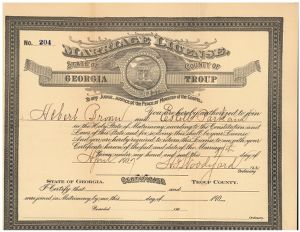 No. 204
MARRIAGE LICENSE.
STATE OF COUNTY OF
GEORGIA TROUP
To any Judge, Justice of the Peace or Minister of the Gospel.
You are hereby authorized to join
in the Holy State of Matrimony, according to the Constitution and
Laws of this State and for so doing this shall be your License.
And you are hereby required to return this License to me with your
Certificate hereon of the fact and date of the Marriage
Given under my hand and seal this day of
April
Ordinary
CERTIFICATE
STATE OF GEORGIA. TROUP COUNTY.
I Certify that and
were joined in Matrimony by me this day of 190
Recorded 190
Ordinary.